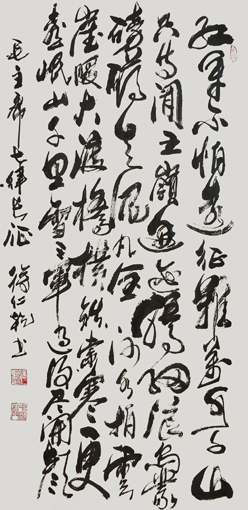 紅軍不怕遠征難萬水千山
只等闲五嶺逶迤騰細浪烏蒙
磅礴走泥丸金沙水拍雲
崖暖大渡橋横鉄索寒更
喜岷山千里雪三軍過後尽開顔
毛主席七律長征 徐仁 书